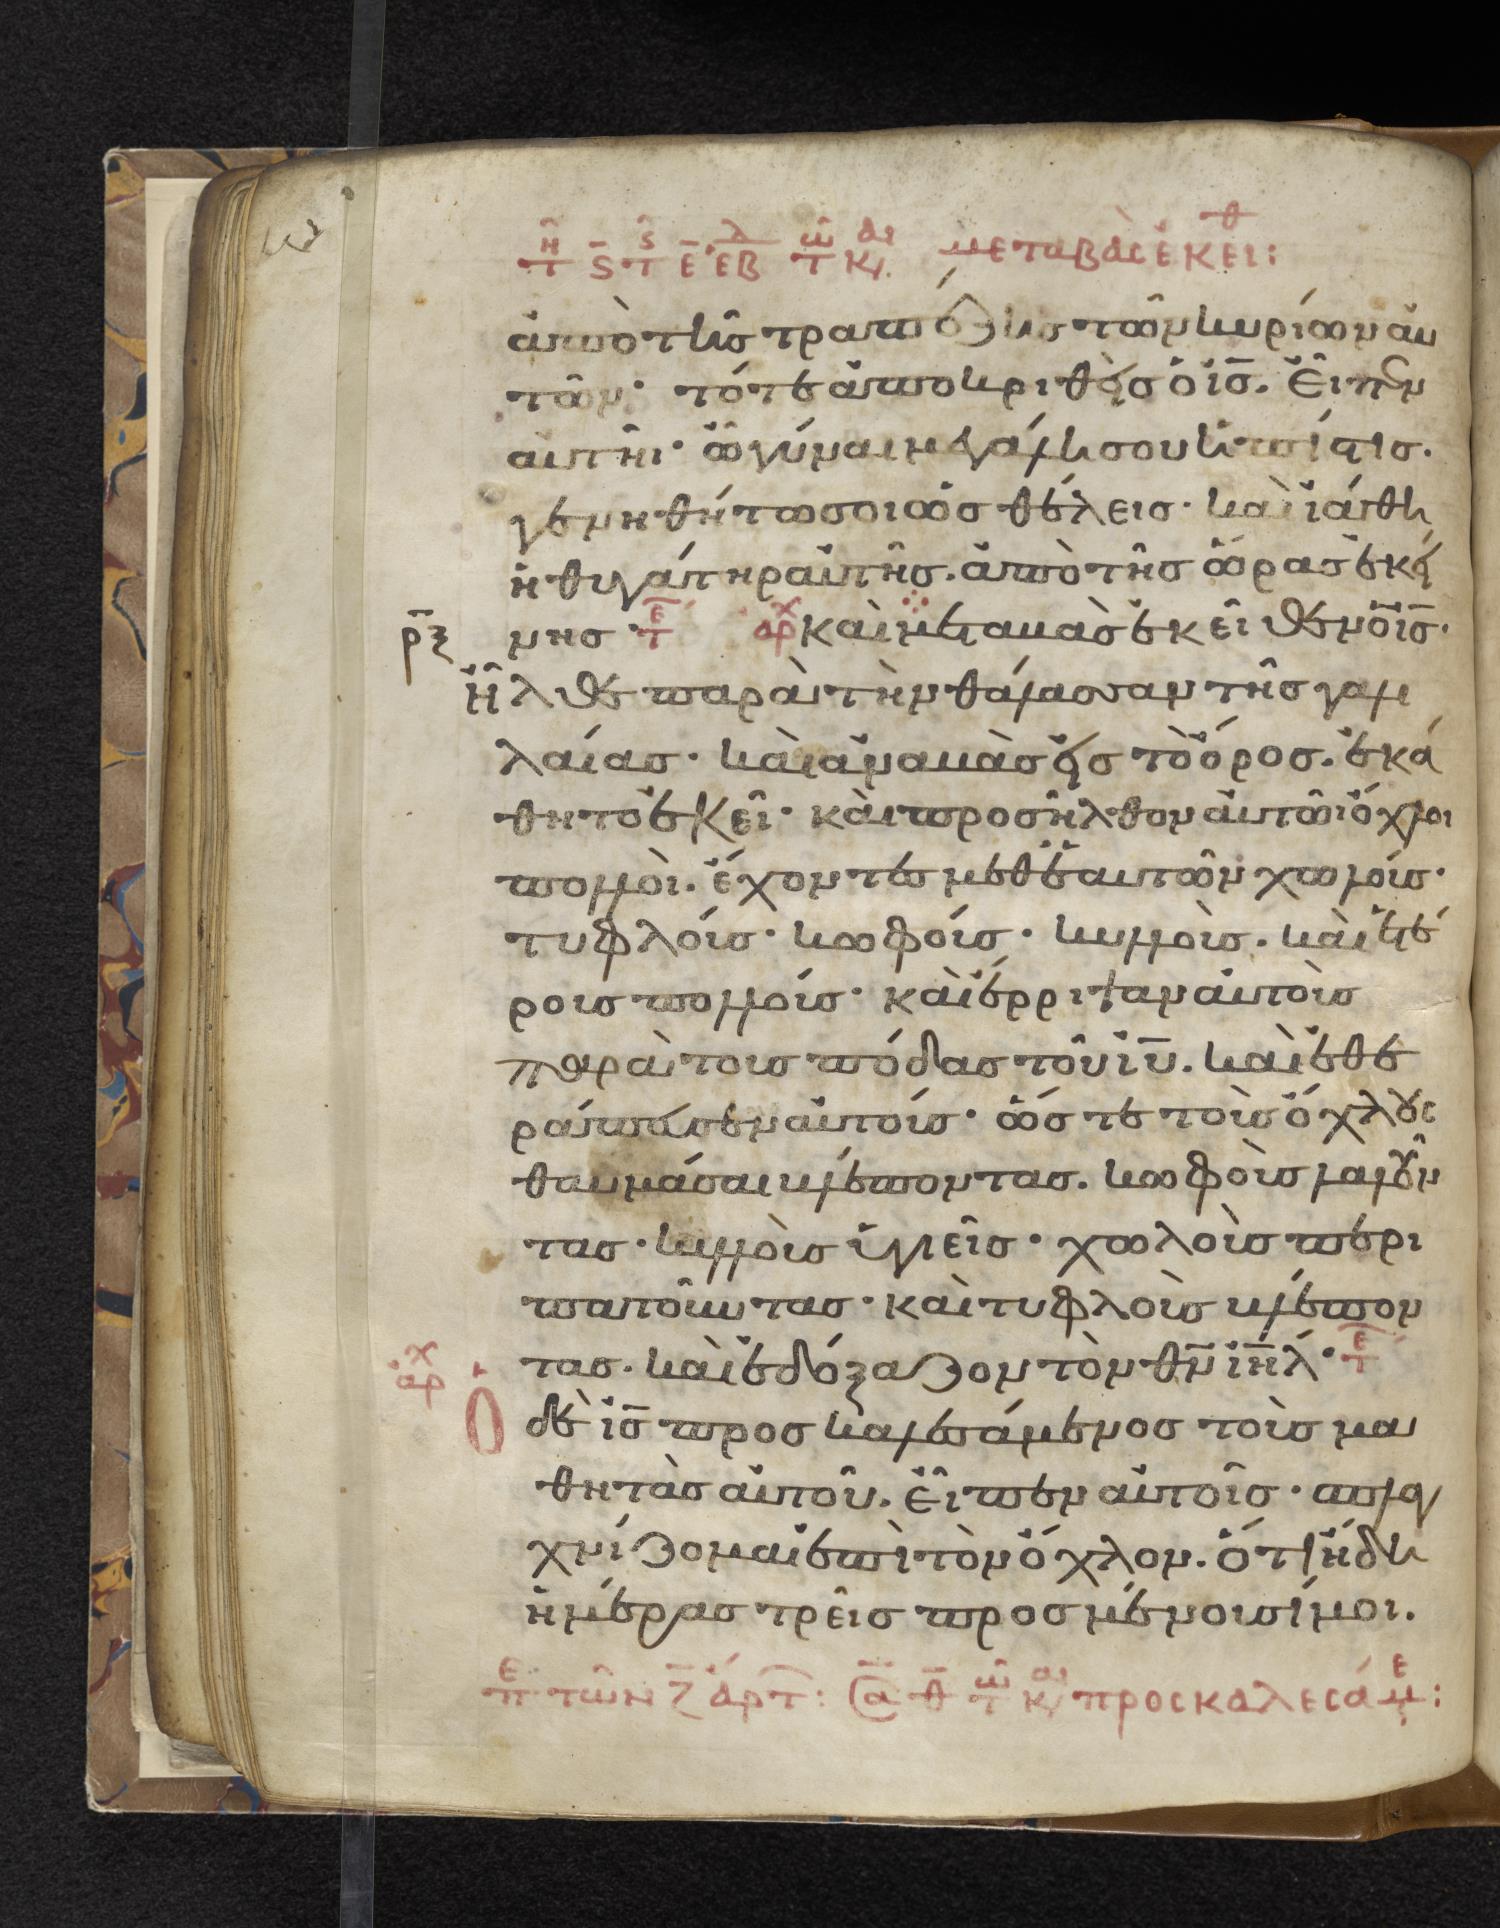 ἀπὸ τῆς τραπέζης τῶν κυρίων αὐ
τῶν· τότε ἀποκριθεὶς ὁ ις̅. εἶπεν
αὐτῆι· ὦ γύναι μεγάλη σου ἡ πίστις.
γενηθήτω σοι ὡς θέλεις· καὶ ἰάθη
ἡ θυγάτηρ αὐτῆς. ἀπὸ τῆς ὥρας ἐκεί
νης· καὶ μεταβὰς ἐκεῖθεν ὁ ις̅·
ἦλθε παρὰ τὴν θάλασσαν τῆς γαλι
λαίας· καὶ ἀναβὰς εἰς τὸ ὄρος. ἐκά
θητο ἐκεῖ· καὶ προσῆλθον αὐτῶι ὄχλοι
πολλοὶ. ἔχοντες μεθ' ἑαυτῶν χωλούς·
τυφλούς· κωφούς· κυλλοὺς. καὶ ἑτέ
ρους πολλούς· καὶ ἔρριψαν αὐτοὺς
παρὰ τοὺς πόδας τοῦ ιυ̅. καὶ ἐθε
ράπευσεν αὐτούς· ὥστε τοὺς ὄχλους
θαυμάσαι βλέποντας. κωφοὺς λαλοῦν
τας· κυλλοὺς ὑγιεῖς· χωλοὺς περι
πατοῦντας· καὶ τυφλοὺς βλέπον
τας. καὶ ἐδόξαζον τὸν θν̅ ιηλ̅·
Ὁ δὲ ις̅ προσκαλεσάμενος τοὺς μα
θητὰς αὐτοῦ. εἶπεν αὐτοῖς· σπλαγ
χνίζομαι ἐπὶ τὸν ὄχλον. ὅτι ἤδη
ἡμέρας τρεῖς προσμένουσί μοι.